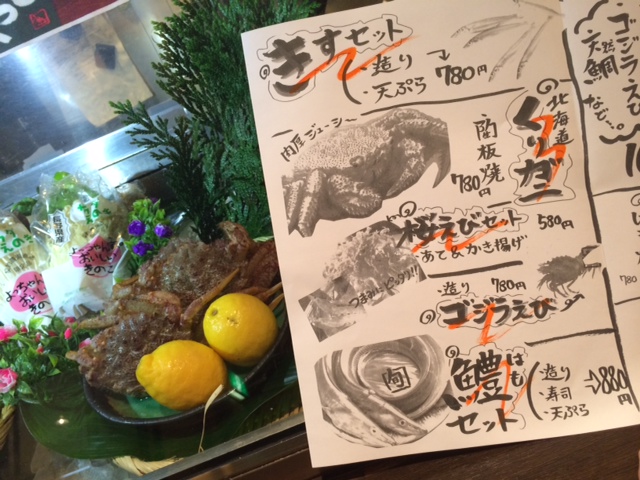 きすセット
・造り
・天ぷら
780円
肉厚ジューシー
北海道
くりガニ
甲板焼
780円
桜えびセット
580円
あて&かき揚げ
つまみにピッタリ!!
・造り 780円
ゴジラえび
旬
鱧はも
セット
・造り
・寿司
・天ぷら
→880円
ゴジラえび
天然鯛
など…
780
長野県産
よっちゃんの
おいしい
きのこ